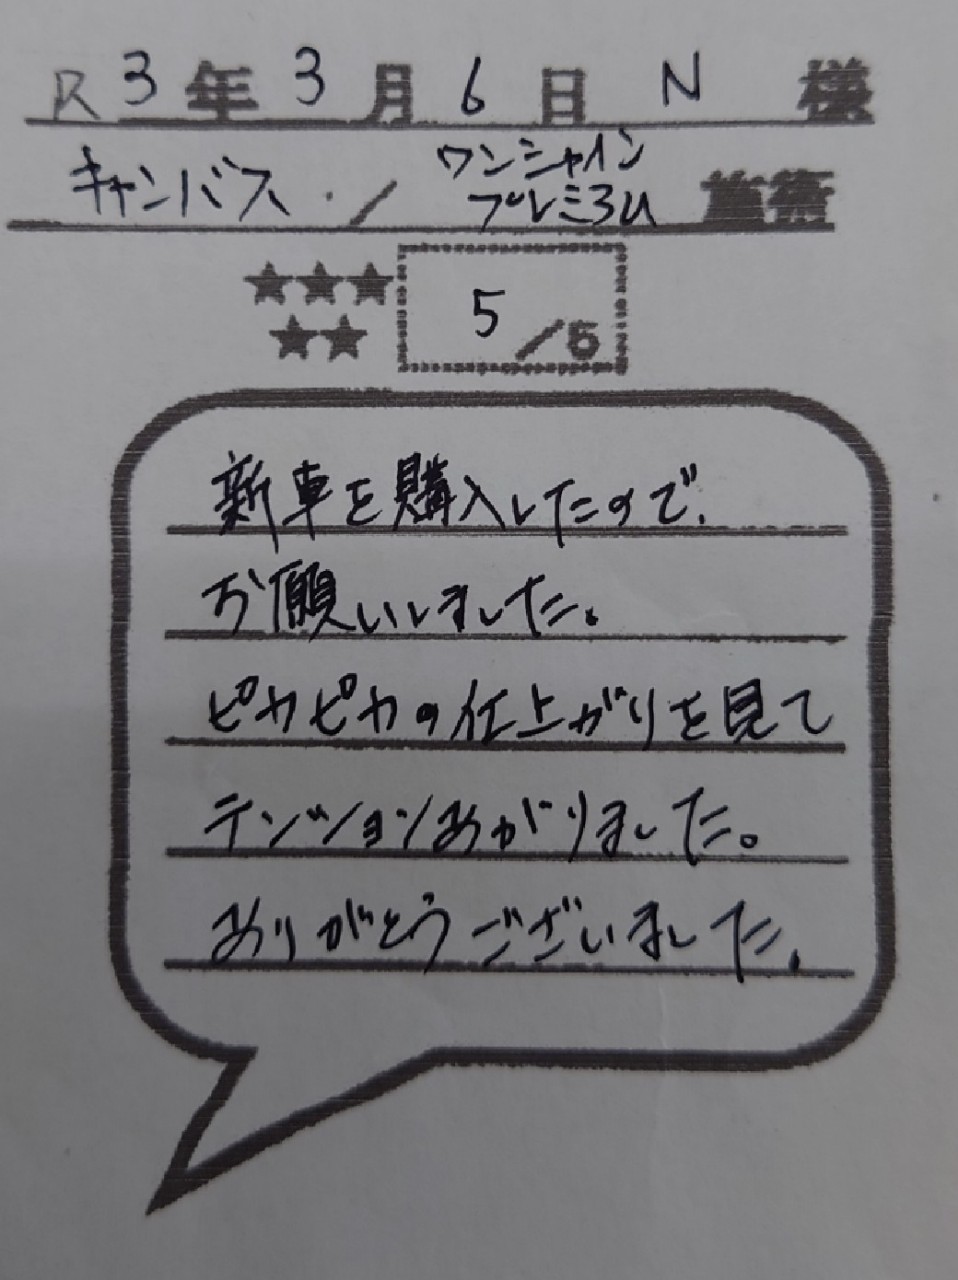 R3年3月6日 N 様
キャンバス / ワンシャイン
プレミアム 施術
★★★
★★
5/5
新車を購入したので、
お願いしました。
ピカピカの仕上がりを見て
テンションあがりました。
ありがとうございました。